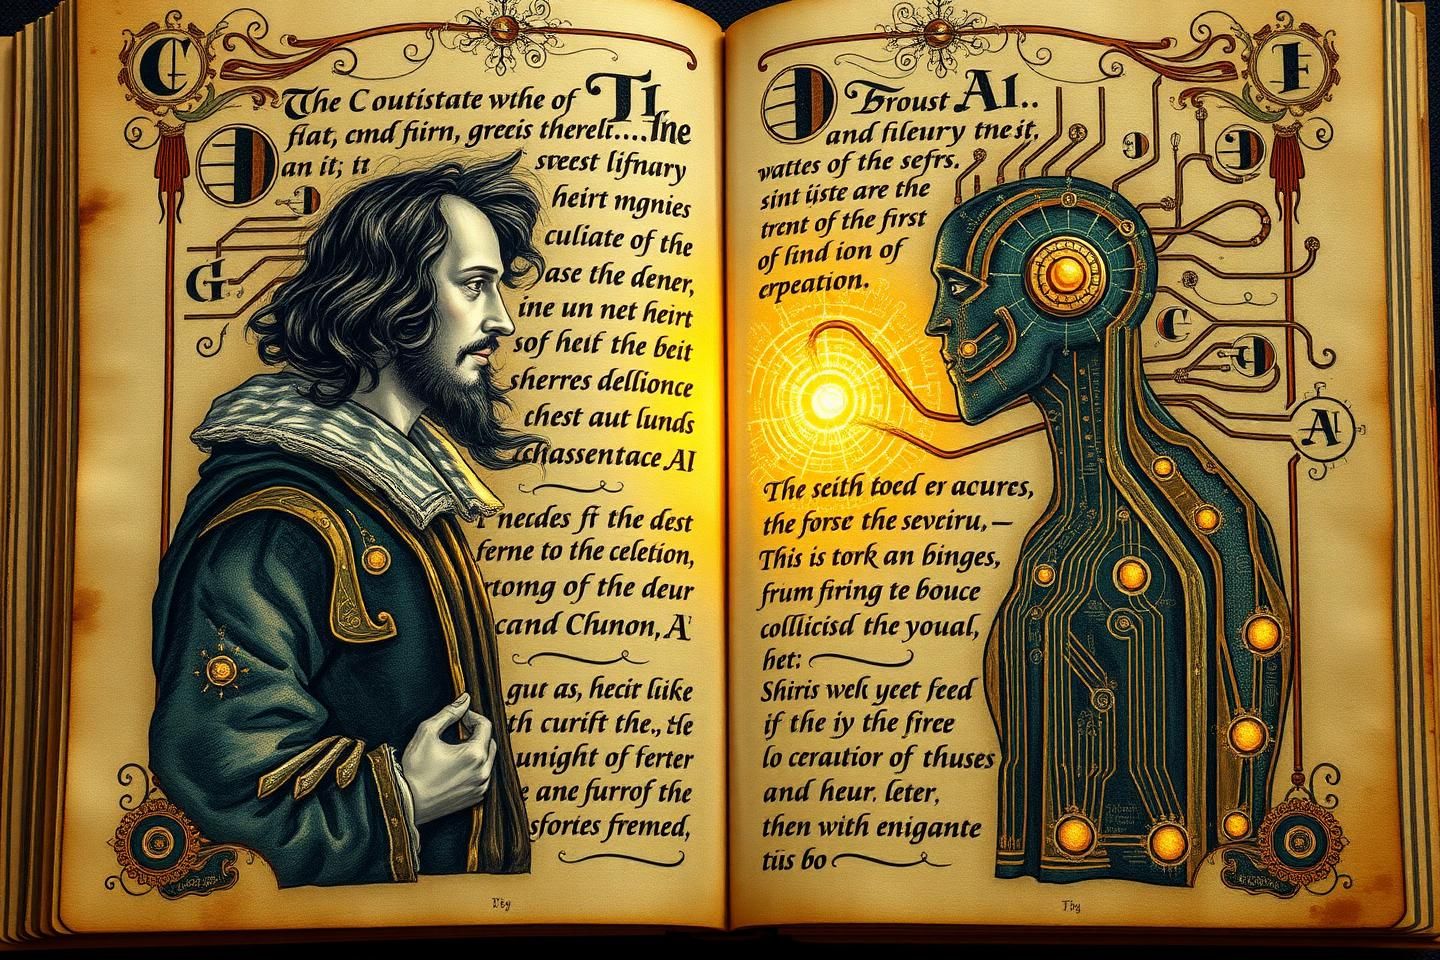 C
The Coutistate wthe of TI
flat, cmd fiirn, greeis therelt....Ine
D an it; tt sveest lifnary
heirt mgnies
culiate of the
G ase the dener,
ine un net heirt
sof heif the beit
sherres dellionce
chest aut lunds
chassentace AI
necdes ff the dest
ferne to the celetion,
rtomg of the deur
cand Chunon, A'
gut as, hecir liike
th curift the., tle
unight of ferter
e ane furrof the
sfories fremed,
D Froust AI..
and fileury tnesit,
wattes of the sefrs.
sint üste are the
trent of the first
of lind ion of
erpeation.
The seith toed er acures,
the forse the seveiru,—
This is tork an binges,
frum firing te bouce
colllicisd the youal,
het:
Shiris welt yeet feed
if the iy the firee
lo ceraitior of thuses
and heur. leter,
then with enigante
tüs bo
C
AI